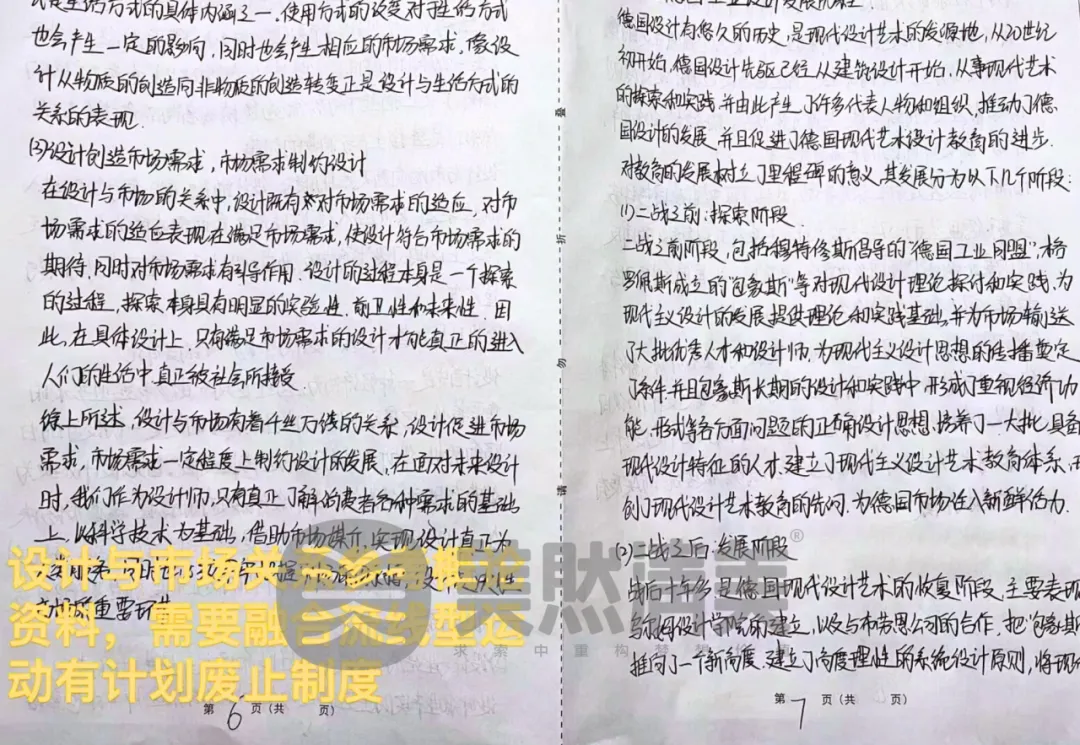 式是生活方式的具体内涵之一.使用方式的改变对于生活方式
也会产生一定的影响,同时也会产生相应的市场需求.像设
计从物质的创造向非物质的创造转变正是设计与生活方式的
关系的表现.
(3)设计创造市场需求,市场需求制约设计
在设计与市场的关系中,设计既有对市场需求的适应,对市
场需求的适应表现在满足市场需求,使设计符合市场需求的
期待,同时对市场需求有引导作用.设计的过程本身是一个探索
的过程,探索本身具有明显的实验性.前卫性和未来性.因
此,在具体设计上,只有满足市场需求的设计才能真正的进入
人们的生活中真正被社会所接受
综上所述,设计与市场有着千丝万缕的关系,设计促进市场
需求,市场需求一定程度上制约设计的发展,在面对未来设计
时,我们作为设计师,只有真正了解消费者各种需求的基础
上,以科学技术为基础,借助市场媒介,实现设计真正为
重要环节
第 6 页(共 页)
设计与市场关
资料,需要融合流线型运
动有计划废止制度
美然清美®
求索中重构梦
装订勿请
德国设计有悠久的历史,是现代设计艺术的发源地,从20世纪
初开始,德国设计先驱已经从建筑设计开始,从事现代艺术
的探索和实践,并由此产生了许多代表人物和组织,推动了德
国设计的发展,并且促进了德国现代艺术设计教育的进步.
对教育的发展树立了里程碑的意义,其发展分为以下几个阶段:
(1)二战之前:探索阶段
二战之前阶段,包括穆特修斯倡导的"德国工业同盟",格
罗佩斯成立的"包豪斯"等对现代设计理论探讨和实践,为
现代主义设计的发展提供理论和实践基础,并为市场输送
了大批优秀人才和设计师.为现代主义设计思想的传播奠定
了条件.并且包豪斯长期的设计和实践中,形成了重视经济功
能,形式等各方面问题的正确设计思想.培养了一大批具备
现代设计特征的人才.建立了现代主义设计艺术教育体系,
创了现代设计艺术教育的先河.为德国市场注入新鲜活力.
(2)二战之后:发展阶段
战后十年多是德国现代设计艺术的恢复阶段,主要表现
乌尔姆设计学院的建立,以及与布劳恩公司的合作,把"包豪斯
推向了一个新高度.建立了高度理性的系统设计原则,将现
第 7 页(共 页)